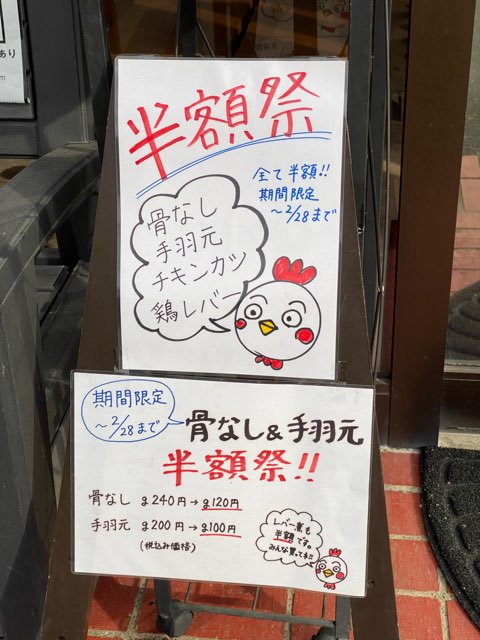 あり
半額祭
全て半額!!
期間限定
〜2/28まで
骨なし
手羽元
チキンカツ
鶏レバー
期間限定
〜2/28まで
骨なし&手羽元
半額祭!!
骨なし g240円→g120円
手羽元 g200円→g100円
(税込み価格)
レバー煮も
半額です。
みんな買ってネ!!